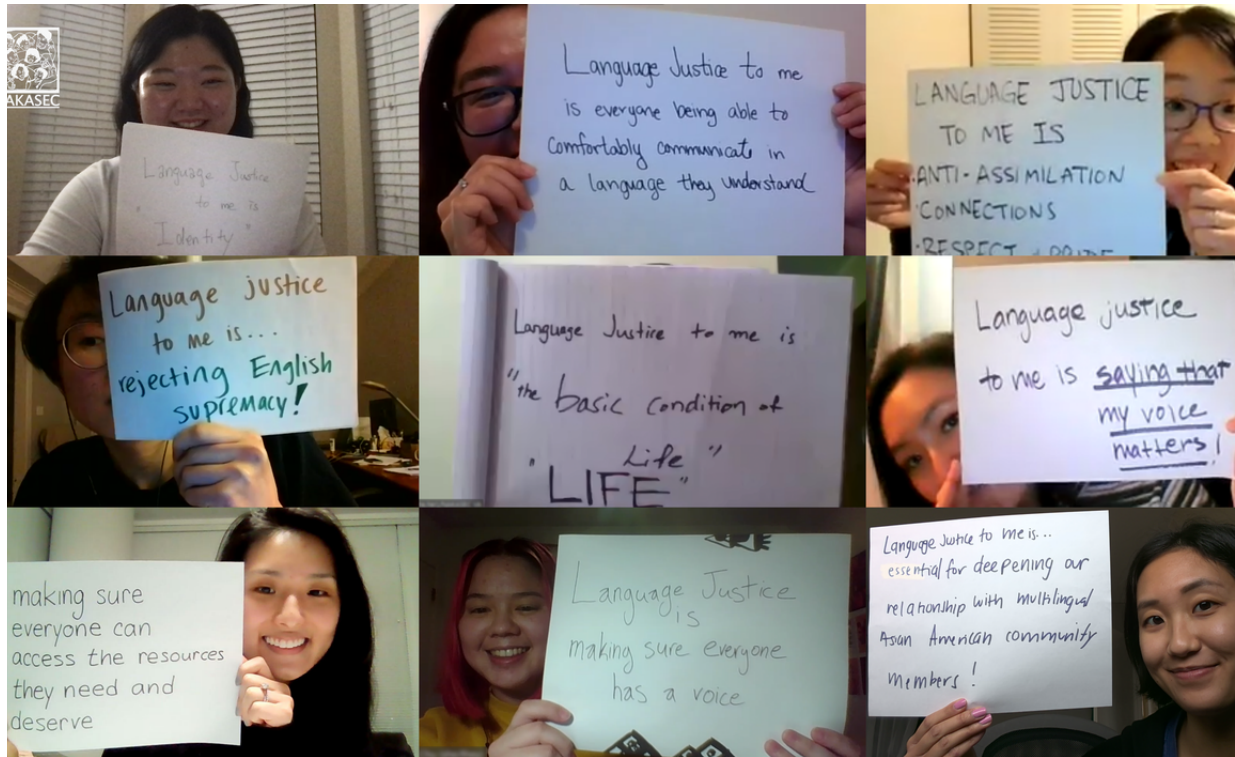 AKASEC
Language Justice
to me is
"Identity"
Language Justice to me
is everyone being able to
comfortably communicate in
a language they understand
LANGUAGE JUSTICE
TO ME IS
·ANTI-ASSIMILATION
·CONNECTIONS
·RESPECT + PRIDE
Language justice
to me is...
rejecting English
supremacy!
Language Justice to me is
"the basic condition of
Life"
"LIFE"
Language justice
to me is saying that
my voice
matters!
making sure
everyone can
access the resources
they need and
deserve
Language Justice
is
making sure everyone
has a voice
Language Justice to me is...
essential for deepening our
relationship with multilingual
Asian American community
members!